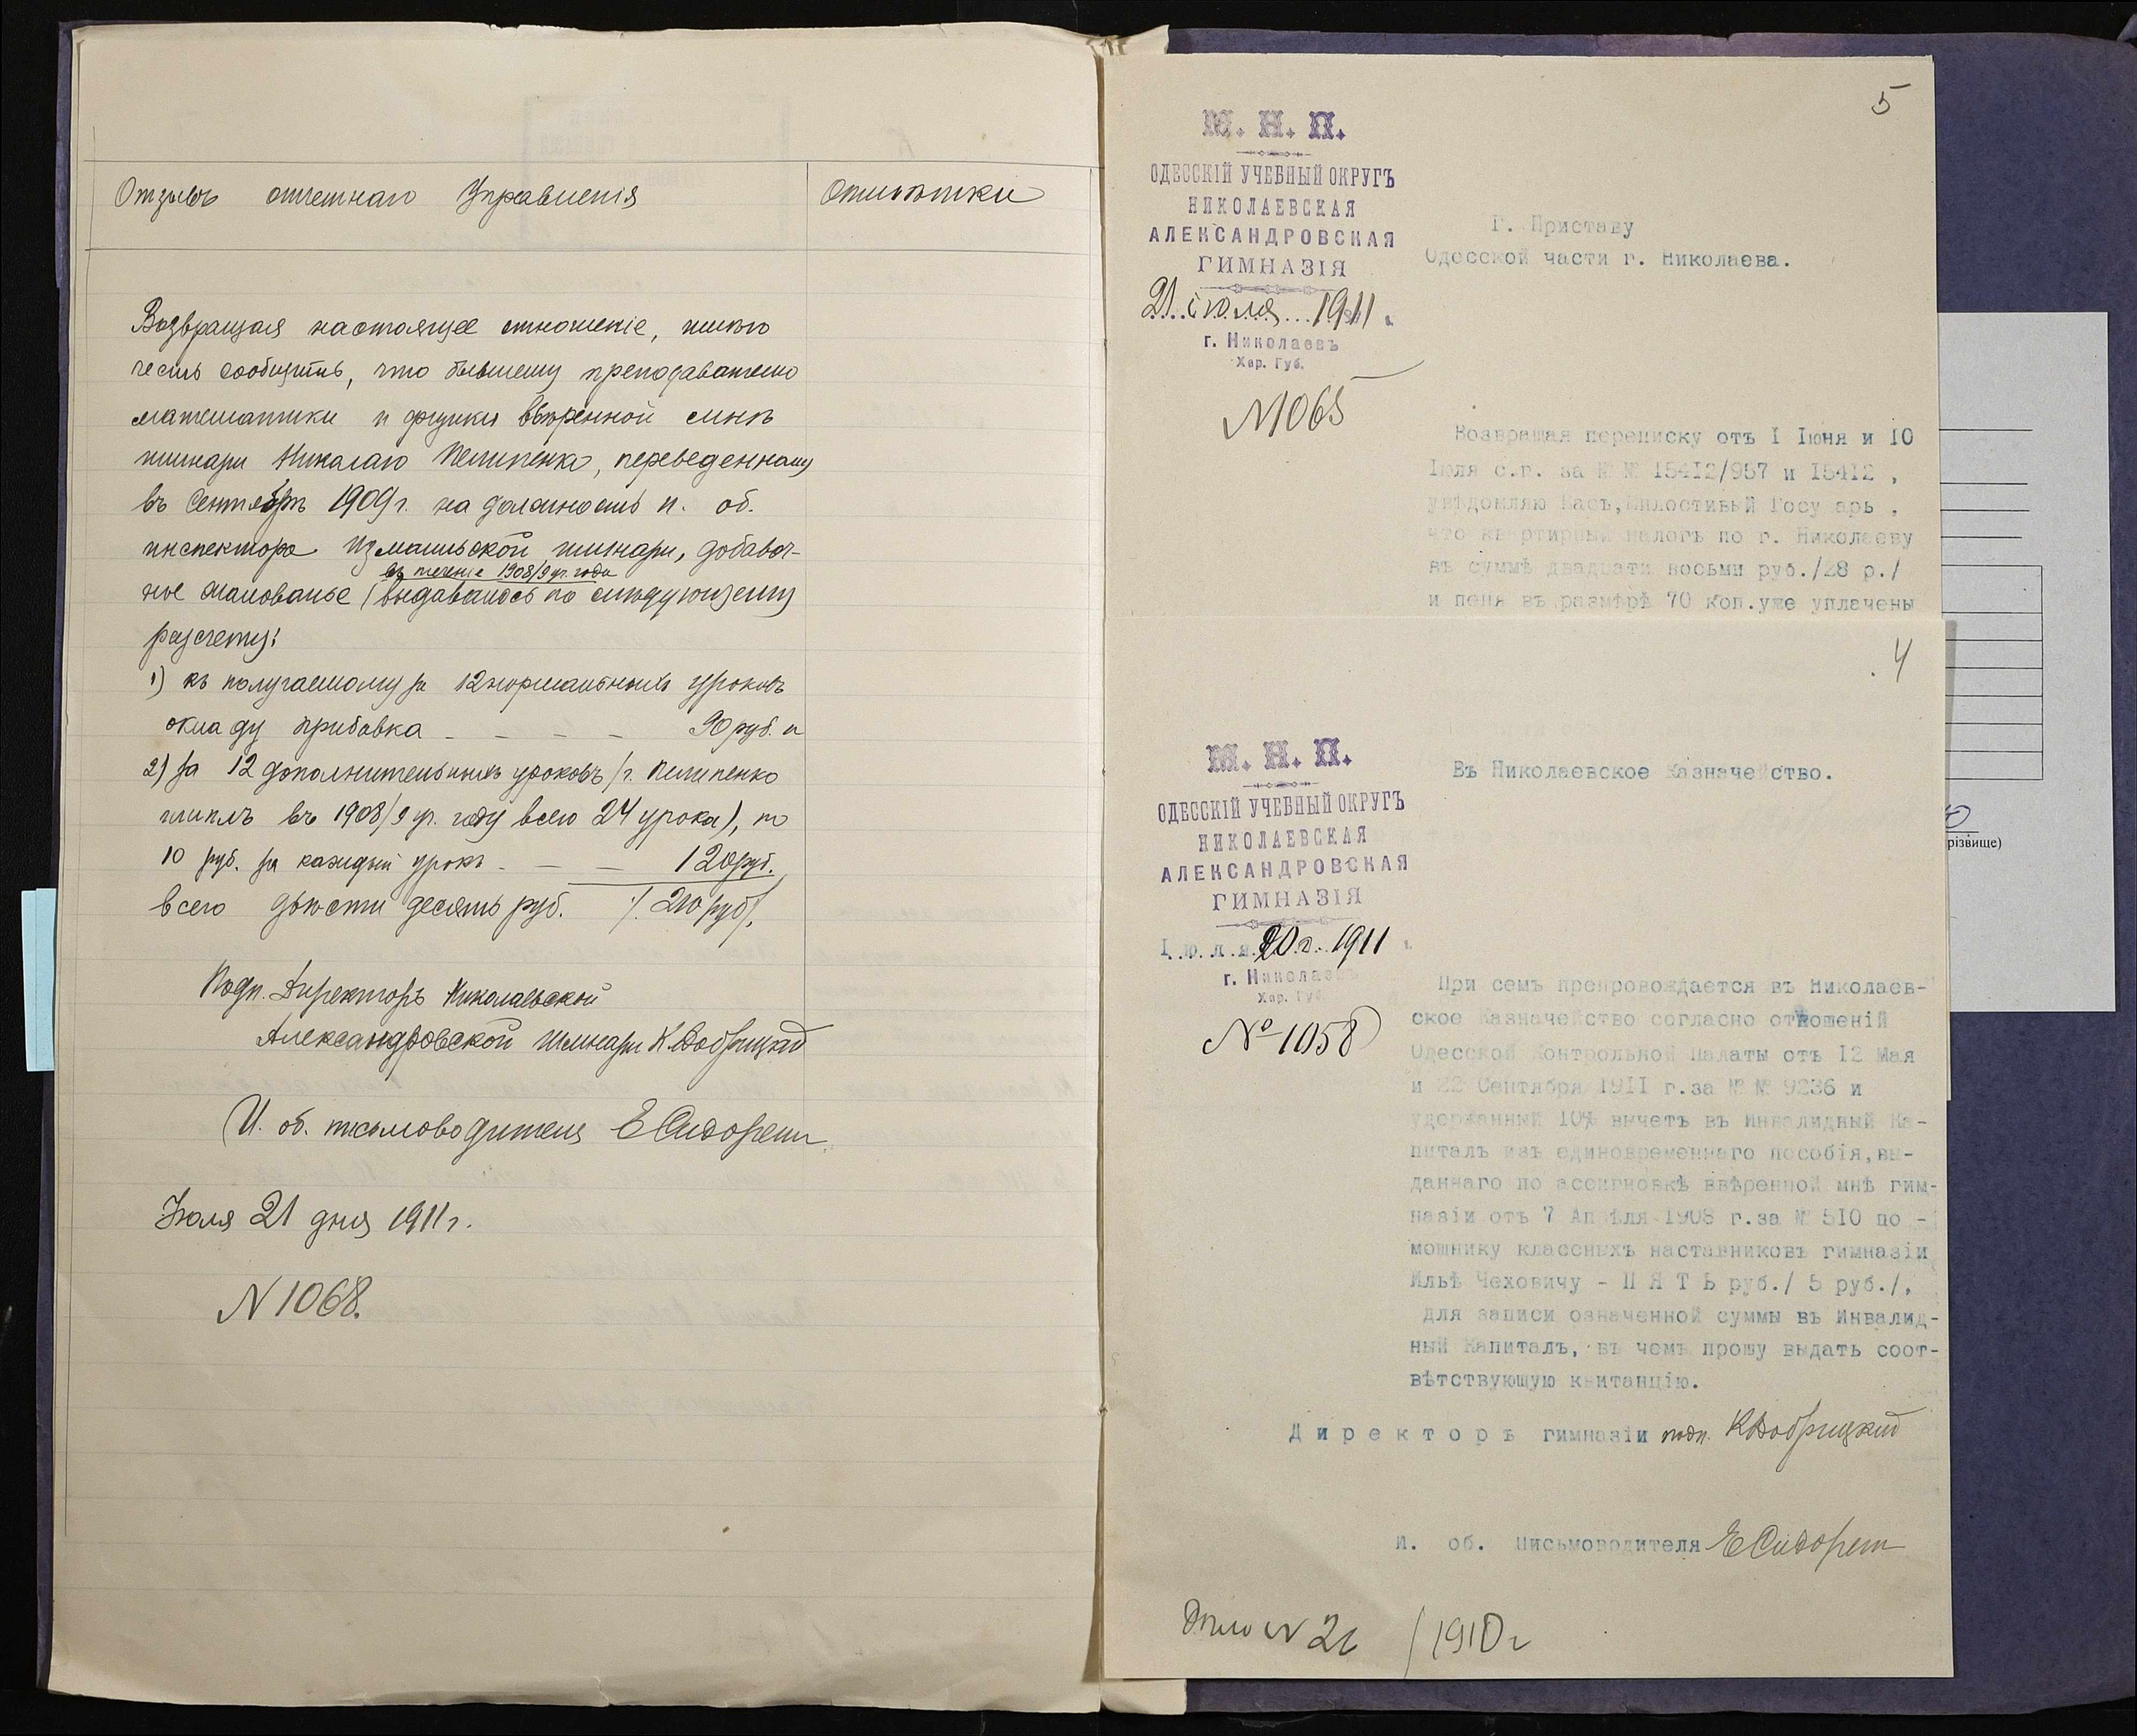 Отзывъ отчетнаго Управленія
Отмѣтки
Возвращая настоящее отношеніе, имѣю
честь сообщить, что бывшему преподавателю
математики и физики ввѣренной мнѣ
гимназіи Николаю Пелипенко, переведенному
въ Сентябрѣ 1909 г. на должность и. об.
инспектора Измаильской гимназіи, добавоч-
въ теченіе 1908/9 уч. года
ное жалованье (выдавалось по слѣдующему
разсчету:
1) къ получаемому за 12 нормальныхъ уроковъ
окладу прибавка - - - - 90 руб. и
2) за 12 дополнительныхъ уроковъ /г. Пелипенко
имѣлъ въ 1908/9 уч. году всего 24 урока), по
10 руб. за каждый урокъ - - - 120 руб.
всего двѣсти десять руб. /. 210 руб/.
Подп. Директоръ Николаевской
Александровской гимназіи К. Добрицкій
И. об. письмоводителя Е Сидорен
Іюля 21 дня 1911 г.
N 1068.
5
М. Н. П.
ОДЕССКІЙ УЧЕБНЫЙ ОКРУГЪ
НИКОЛАЕВСКАЯ
АЛЕКСАНДРОВСКАЯ
ГИМНАЗІЯ
21 іюля 1911 г.
г. Николаевъ
Хер. Губ.
N 1065
Г. Приставу
Одесской части г. Николаева.
Возвращая переписку отъ I Іюня и IO
Іюля с.г. за № № I54I2/957 и I54I2 ,
увѣдомляю Васъ, Милостивый Госу арь ,
что квартирный налогъ по г. Николаеву
въ суммѣ двадцати восьми руб./28 р./
и пеня въ размѣрѣ 70 коп.уже уплачены
4
М. Н. П.
ОДЕССКІЙ УЧЕБНЫЙ ОКРУГЪ
НИКОЛАЕВСКАЯ
АЛЕКСАНДРОВСКАЯ
ГИМНАЗІЯ
Іюля 20 г. 1911 г.
г. Николаевъ
Хер. Губ.
№ 1058
Въ Николаевское Казначейство.
При семъ препровождается въ Николаев-
ское Казначейство согласно отношеній
Одесской Контрольной Палаты отъ I2 Мая
и 22 Сентября I9II г.за № № 9236 и
удержанный 10% вычетъ въ Инвалидный Ка-
питалъ изъ единовременнаго пособія,вы-
даннаго по ассигновкѣ ввѣренной мнѣ гим-
назіи отъ 7 Апрѣля 1908 г.за № 5I0 по -
мощнику классныхъ наставниковъ гимназіи
Ильѣ Чеховичу - П Я Т Ь руб./ 5 руб./,
для записи означенной суммы въ Инвалид-
ный Капиталъ, въ чемъ прошу выдать соот-
вѣтствующую квитанцію.
Д и р е к т о р ъ гимназіи подп. К Добрицкій
И. об. Письмоводителя Е Сидорен
Дѣло N 26 / 1910 г
різвище)